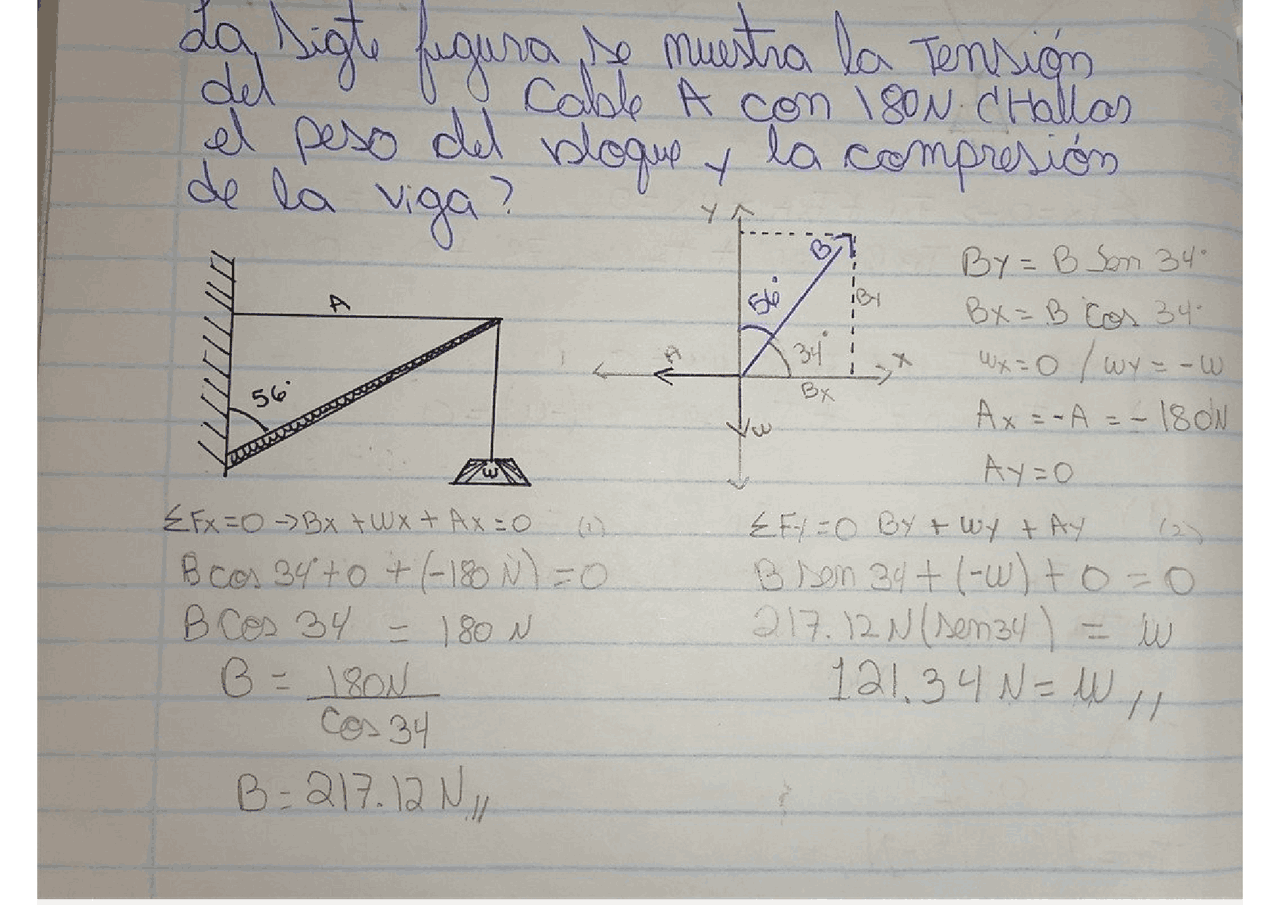 La sigte figura se muestra la Tensión
del Cable A con 180N. ¿Hallas
el peso del bloque y la compresión
de la viga?
A
56°
W
Y
B
56°
By
34°
A
X
Bx
W
By = B Sen 34°
Bx = B Cos 34°
Wx = 0 / Wy = -W
Ax = -A = -180N
Ay = 0
ΣFx=0 → Bx + Wx + Ax = 0 (1)
B cos 34° + 0 + (-180 N) = 0
B Cos 34 = 180 N
B = 180N
Cos 34
B = 217.12 N //
ΣFy = 0 By + Wy + Ay (2)
B sen 34 + (-W) + 0 = 0
217.12 N (sen 34) = W
121.34 N = W //